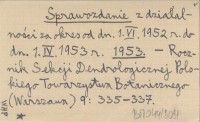 Sprawozdanie z działal-
ności za okres od dn. 1.VI. 1952 r. do
dn. 1.IV. 1953 r. 1953. — Rocz-
nik Sekcji Dendrologicznej Pols-
kiego Towarzystwa Botanicznego
(Warszawa) 9: 335-337.